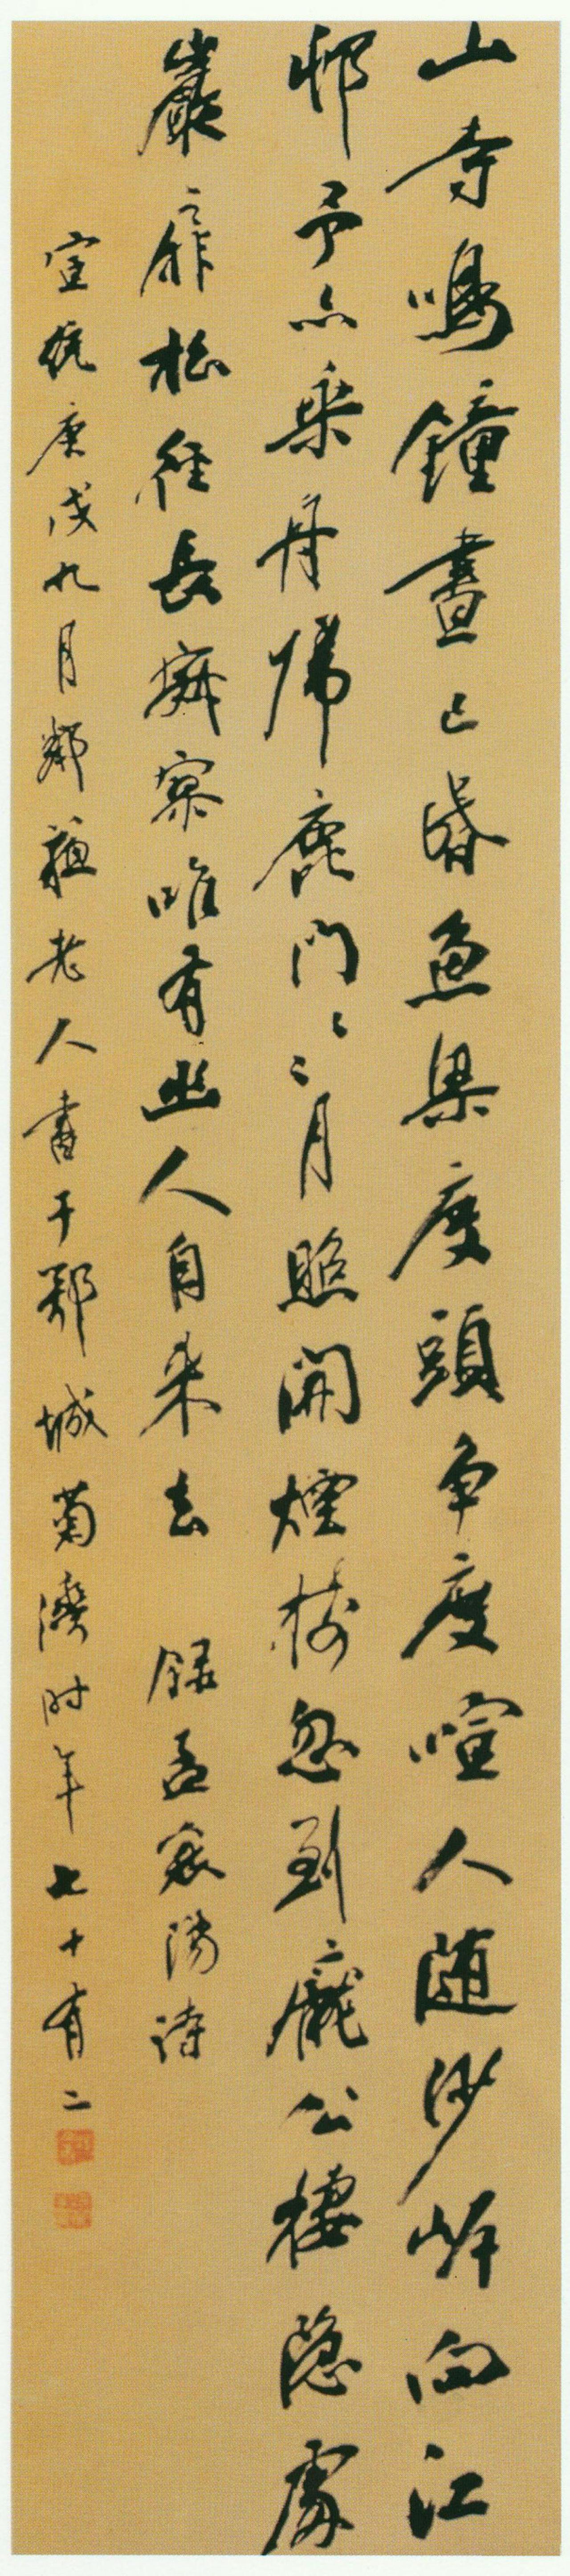 山寺鳴鐘晝已昏魚梁度頭争度喧人随沙岸向江
邨予亦乘舟歸鹿門〻〻月照開煙樹忽到龐公棲隱處
巖扉松徑長寂寞唯有幽人自来去 録孟襄陽詩
宣統庚戌九月鄰蘇老人書于鄂城菊灣時年七十有二